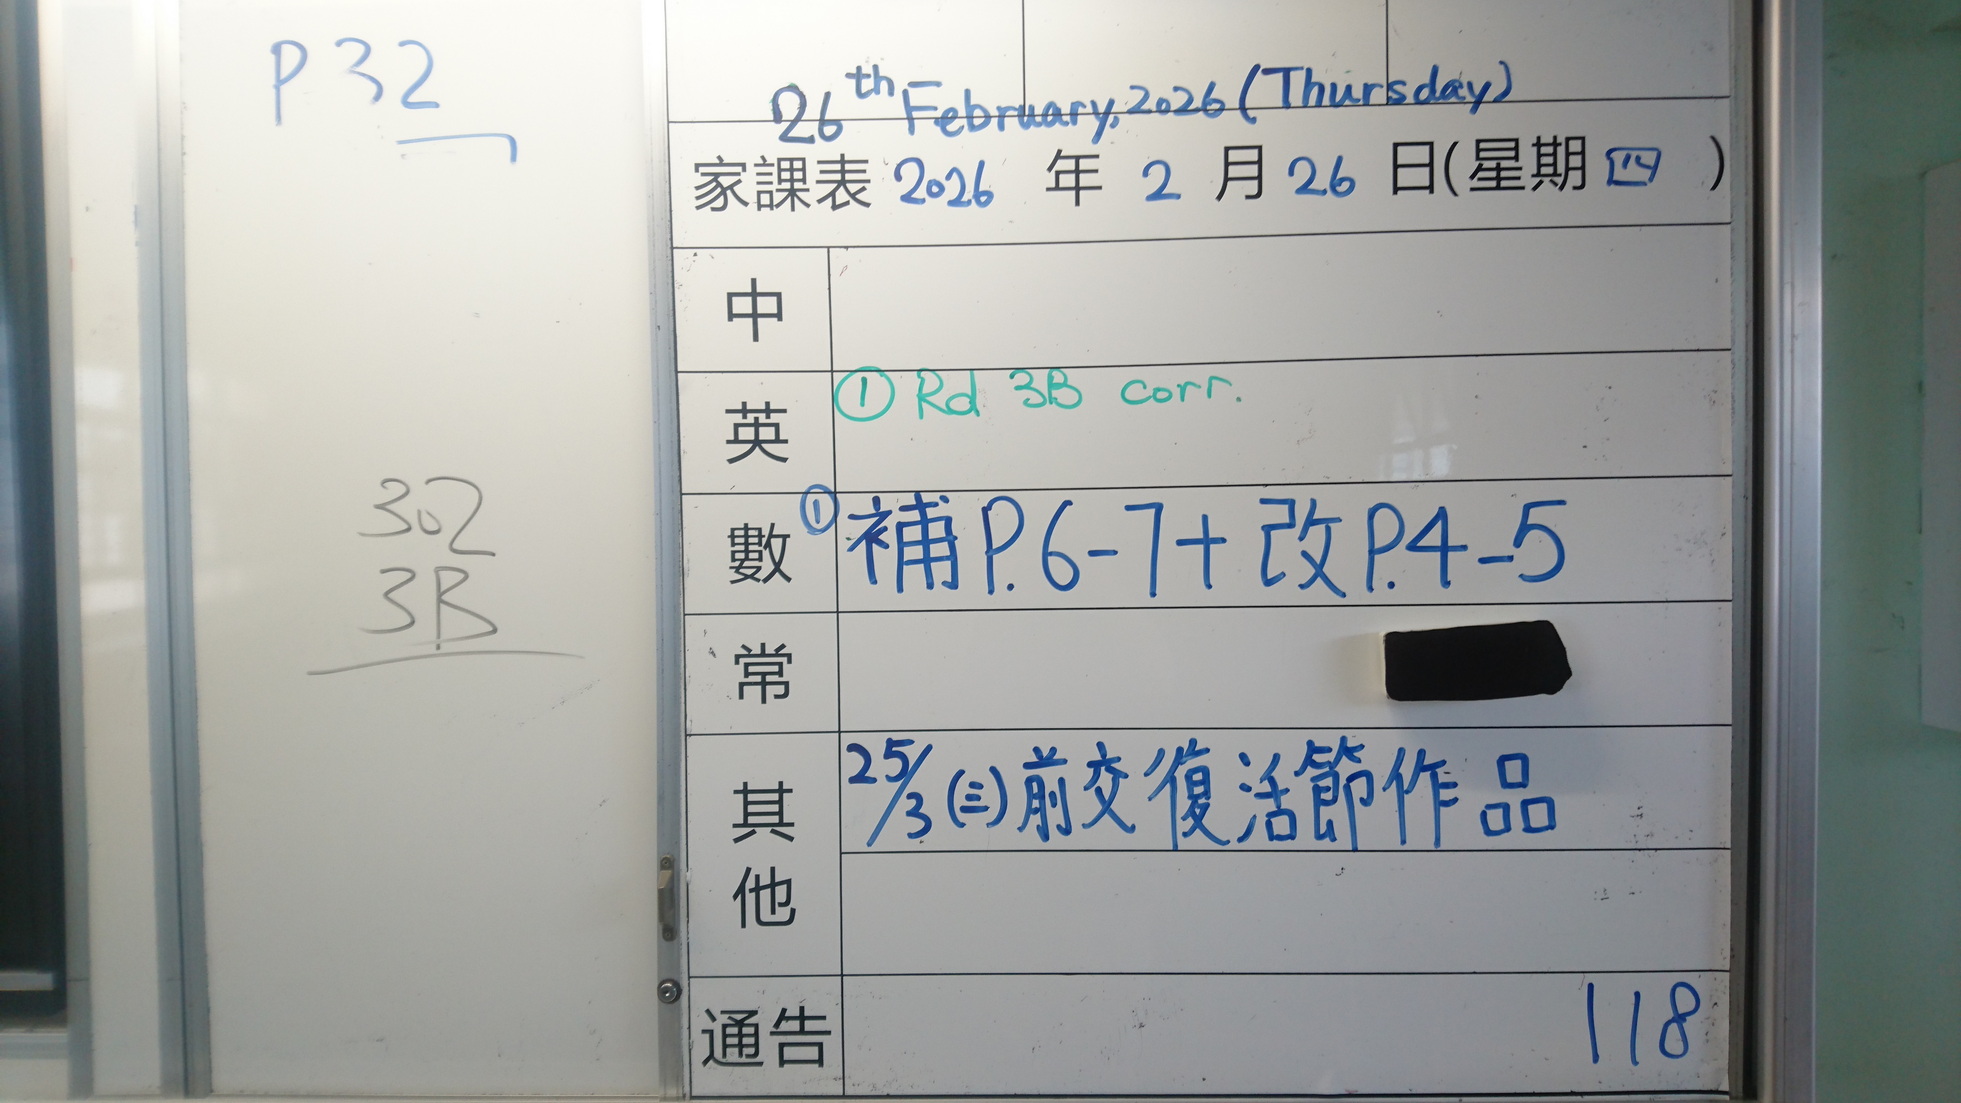 P 32
302
3B
26th February, 2026 (Thursday)
家課表 2026 年 2 月 26 日(星期四)
中
英 ① Rd 3B corr.
數 ① 補 P.6-7+ 改 P.4-5
常
其他 25/3 (三) 前交復活節作品
通告 118